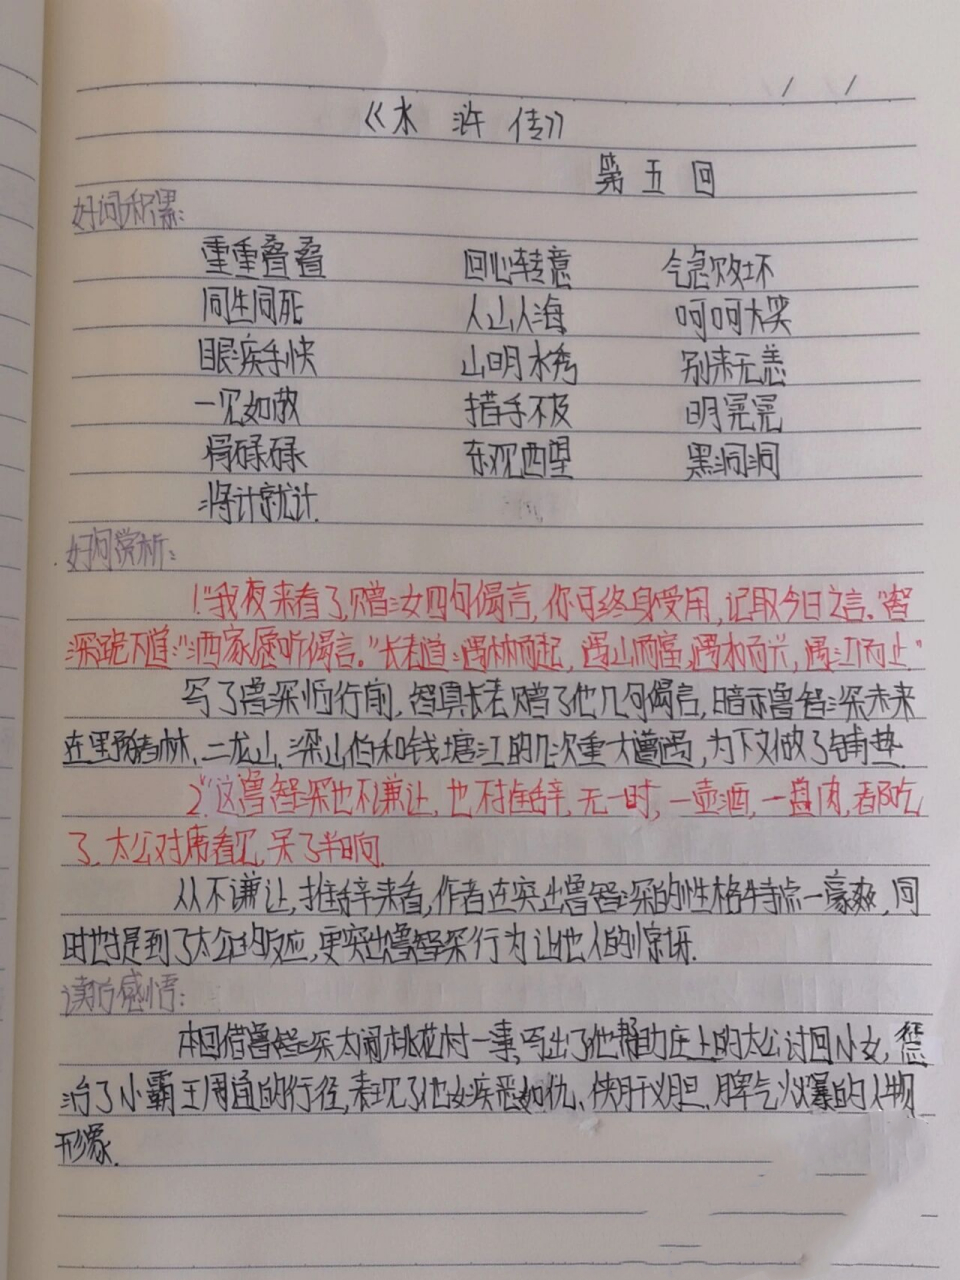 《水浒传》
第五回
好词积累:
重重叠叠 回心转意 气急败坏
同生同死 人山人海 呵呵大笑
眼疾手快 山明水秀 别来无恙
一见如故 措手不及 明晃晃
骨碌碌 东观西望 黑洞洞
将计就计.
好句赏析:
1."我夜来看了,赠汝四句偈言,你可终身受用,记取今日之言."智
深跪下道:"洒家愿听偈言。"长老道:遇林而起,遇山而富,遇水而兴,遇江而止."
写了鲁深师行前,智真长老赠了他几句偈言,暗示鲁智深未来
在野猪林、二龙山、梁山伯和钱塘江的几次重大遭遇,为下文做了铺垫.
2."这鲁智深也不谦让,也不推辞,无一时,一壶酒,一盘肉,都吃
了,太公对席看见,呆了半晌.
从不谦让,推辞来看,作者在突出鲁智深的性格特点一豪爽,同
时也提到了太公的反应,更突出鲁智深行为让他人的惊讶.
读后感悟:
本回借鲁智深大闹桃花村一事,写出了他帮助庄上的太公讨回小女,惩
治了小霸王周通的行径,表现了他嫉疾恶如仇、侠肝义胆、脾气火爆的人物
形象.